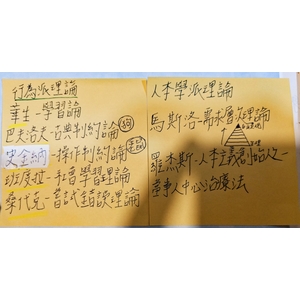 行為派理論
華生-學習論
巴夫洛夫-古典制約論 狗
史金納-操作制約論
班度拉-社會學習理論
桑代克-嘗試錯誤理論
人本學派理論
馬斯洛-需求層次理論
羅杰斯-人本主義創始人-
當事人中心治療法